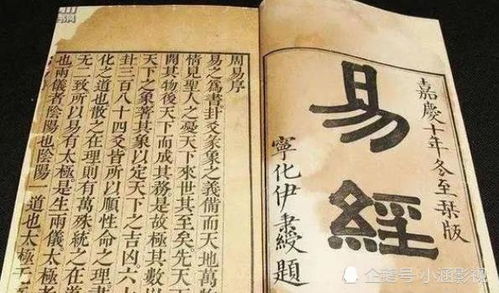 嘉慶十年冬至栞版
易經
寧化伊秉綬題
周易序
易之爲書卦爻彖象之義備而天地萬
情見聖人之憂天下來世其至矣先天
開其物後天下而成其務是故極其數
天下之象著其象以定天下之吉凶六
卦三百八十四爻皆所以順性命之理
化之道也散之在理則有萬殊統之在
无二致所以易有太極是生兩儀太極
也兩儀者陰陽也陰陽一道也太極无
企鹅号 小涵影视